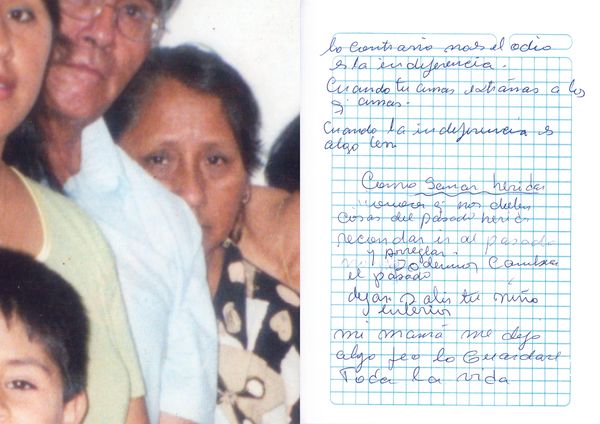 lo contrario no es el odio
es la indiferencia.
Cuando tu amas extrañas a los
q' amas.
Cuando la indiferencia es
algo
Como sanar heridas
q' nos duelen
cosas del pasado
recordar ir al pasado
y arreglar.
Podemos Cambiar
el pasado
dejar salir tu niño
interior
mi mamá me dejo
algo feo lo Guardare
Toda la vida